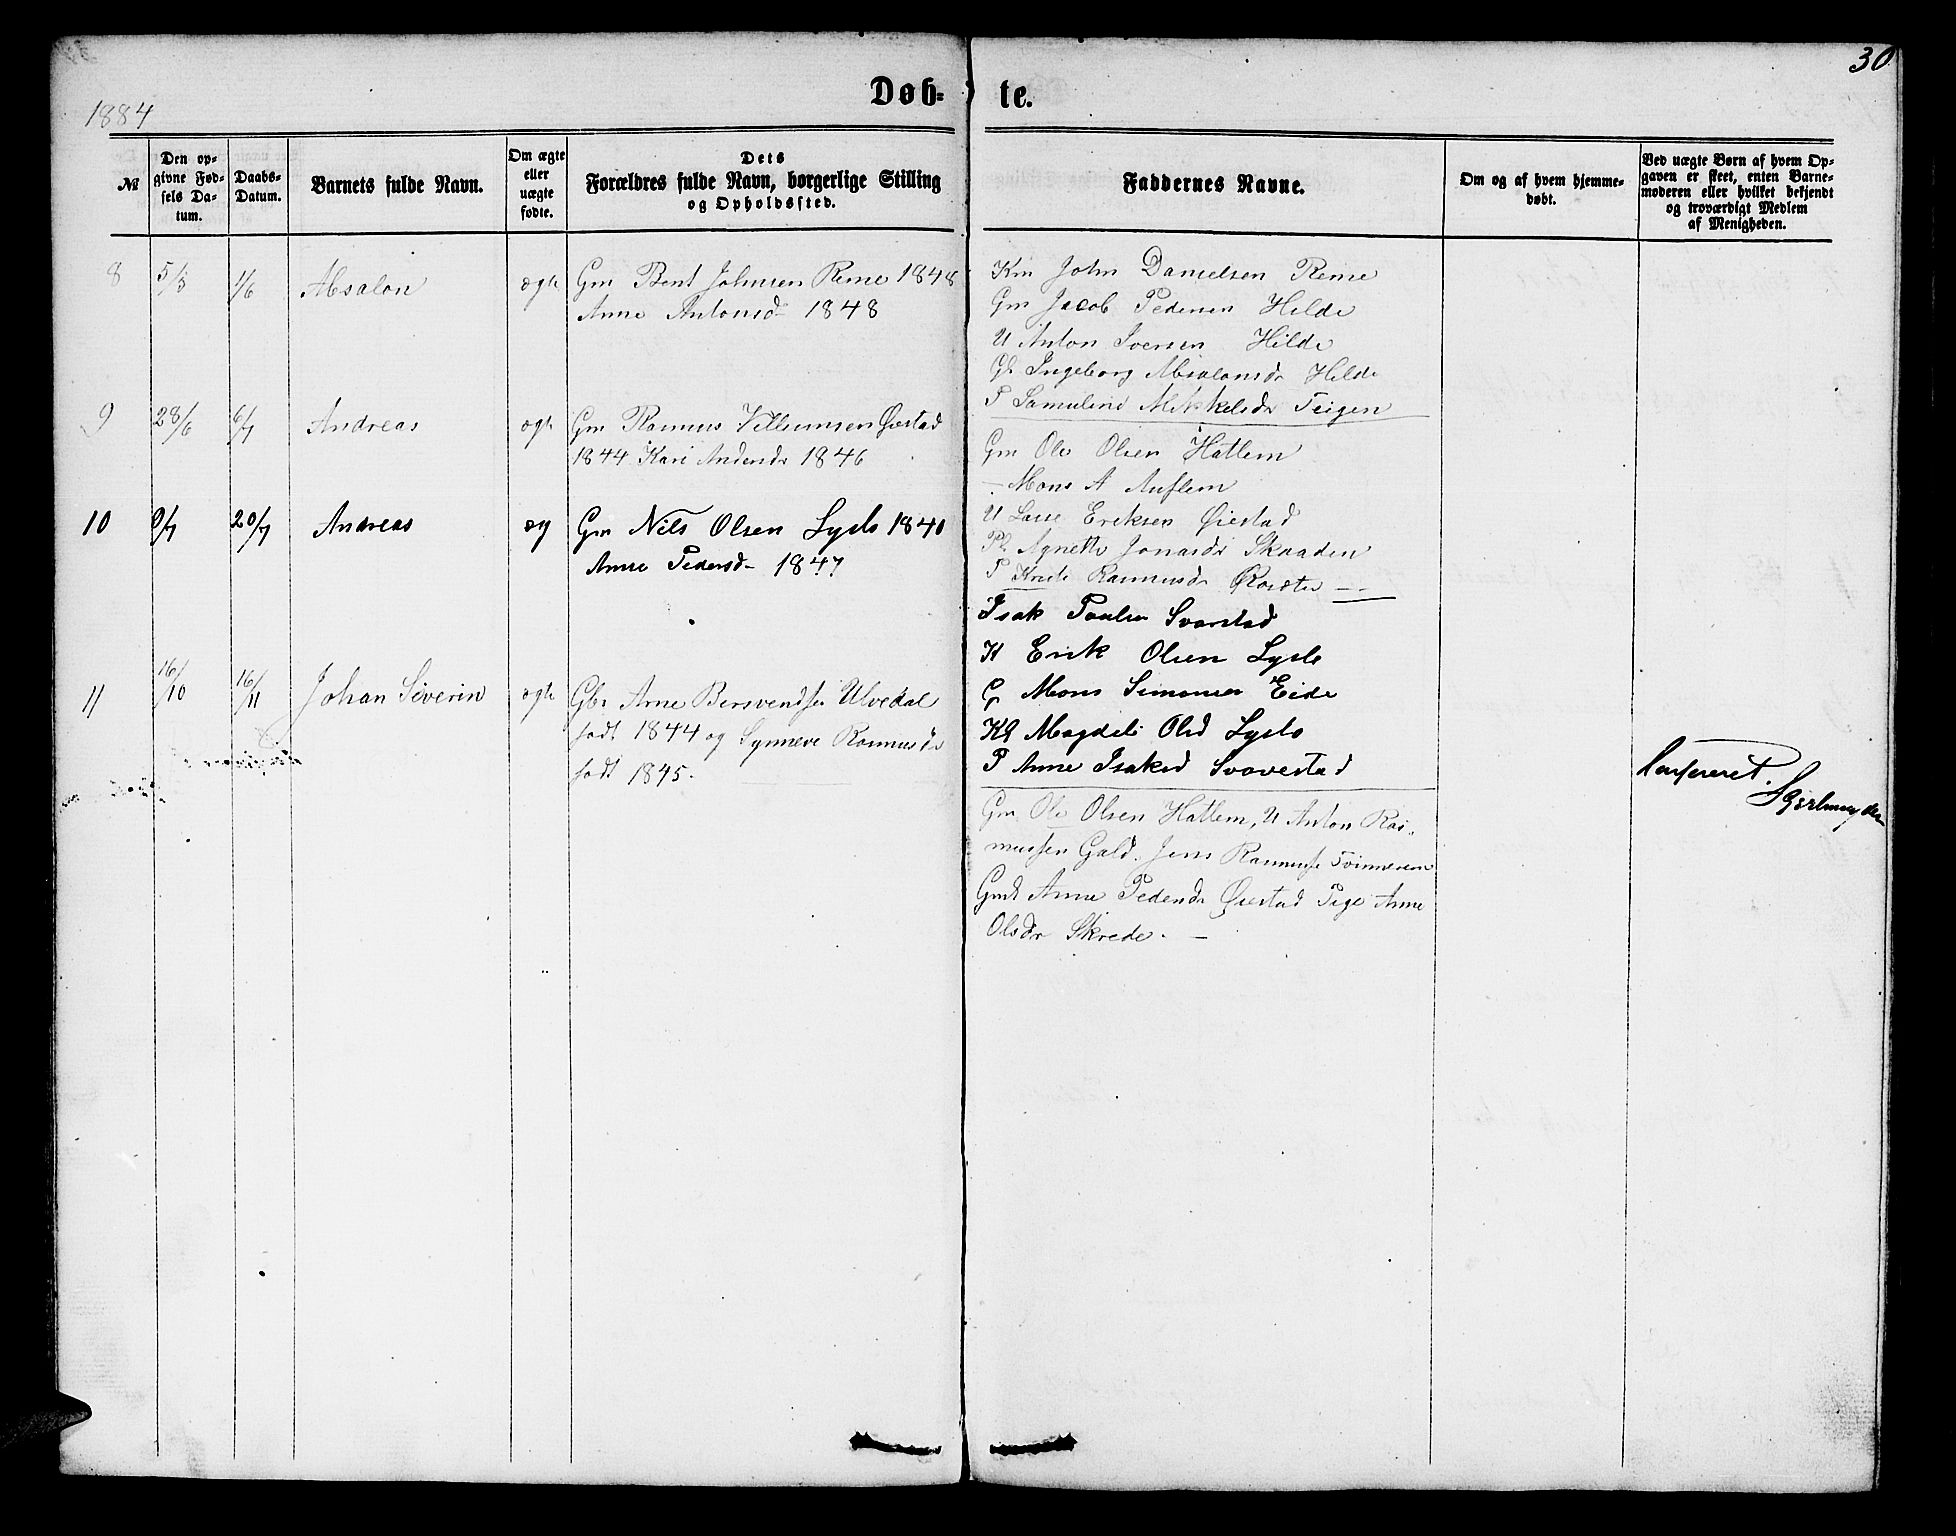 30
1884
Døb- te.
№
Den op-
givne Fød-
sels Da-
tum.
Daabs-
Datum.
Barnets fulde Navn.
Om ægte
eller
uægte
fødte.
Dets
Forældres fulde Navn, borgerlige Stilling
og Opholdssted.
Faddernes Navne.
Om og af hvem hjemme-
døbt.
Ved uægte Børn af hvem Op-
gaven er skeet, enten Barne-
moderen eller hvilket bekjendt
og troværdigt Medlem
af Menigheden.
8 5/5 1/6 Absalon ægte Gm Bent Johnsen Reme 1848
Anne Antonsd 1848
Km John Danielsen Reme
Gm Jacob Pedersen Hilde
U Anton Iversen Hilde
Gk Ingeborg Absalonsdr Hilde
P Samuline Mikkelsdr Teigen
9 28/6 6/7 Andreas ægte Gm Rasmus Villumsen Øiestad
1844 Kari Andersdr 1846
Gm Ole Olsen Hatlem
- Mons A Auflem
U Lasse Eriksen Øiestad
Pk Agnethe Jonasdr Skaaden
P Rasmusdr
10 9/7 20/7 Andreas æg Gm Nils Olsen Lyslo 1840
Anne Pedersd 1847
Isak Paulsen Svarstad
K Erik Olsen Lyslo
G Mons Simonsen Eide
Kk Magdeli Olsd Lyslo
P Anne Isaksd Svarestad
11 16/10 16/11 Johan Severin ægte Gbr Arne Bersvendsen Ulvedal
født 1844 og Synneve Rasmusdr
født 1845.
Gm Ole Olsen Hatlem, U Anton Ras-
mussen Gald. Jens Rasmusse
Gmk Anne Pedersdr Øiestad Pige Anne
Olsdr Skrede. -
Confereret.